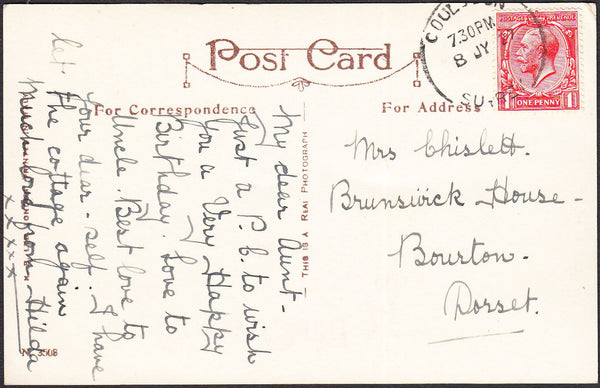 Post Card
For Correspondence
For Address
My dear Aunt -
Just a P.C. to wish
you a Very Happy
Birthday. Love to
Uncle. Best love to
Your dear - self. I have
let the cottage again
Much love from Hilda
x x x x x
THIS IS A REAL PHOTOGRAPH
No 3508
7.30PM
8 JY
POSTAGE REVENUE
ONE PENNY
Mrs Chislett.
Brunswick House -
Bourton.
Dorset.